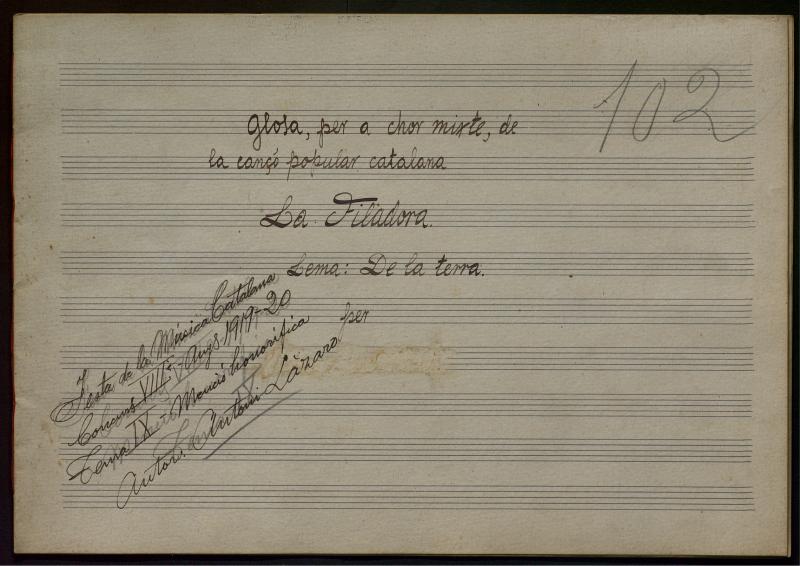 102
Glosa, per a chor mixte, de
la cançó popular catalana
La Filadora.
Lema: De la terra.
per
Festa de la Música Catalana
Concurs VIIIè - Anys 1919-20
Tema IX - Menció honorífica
Autor: Antoni Lázaro